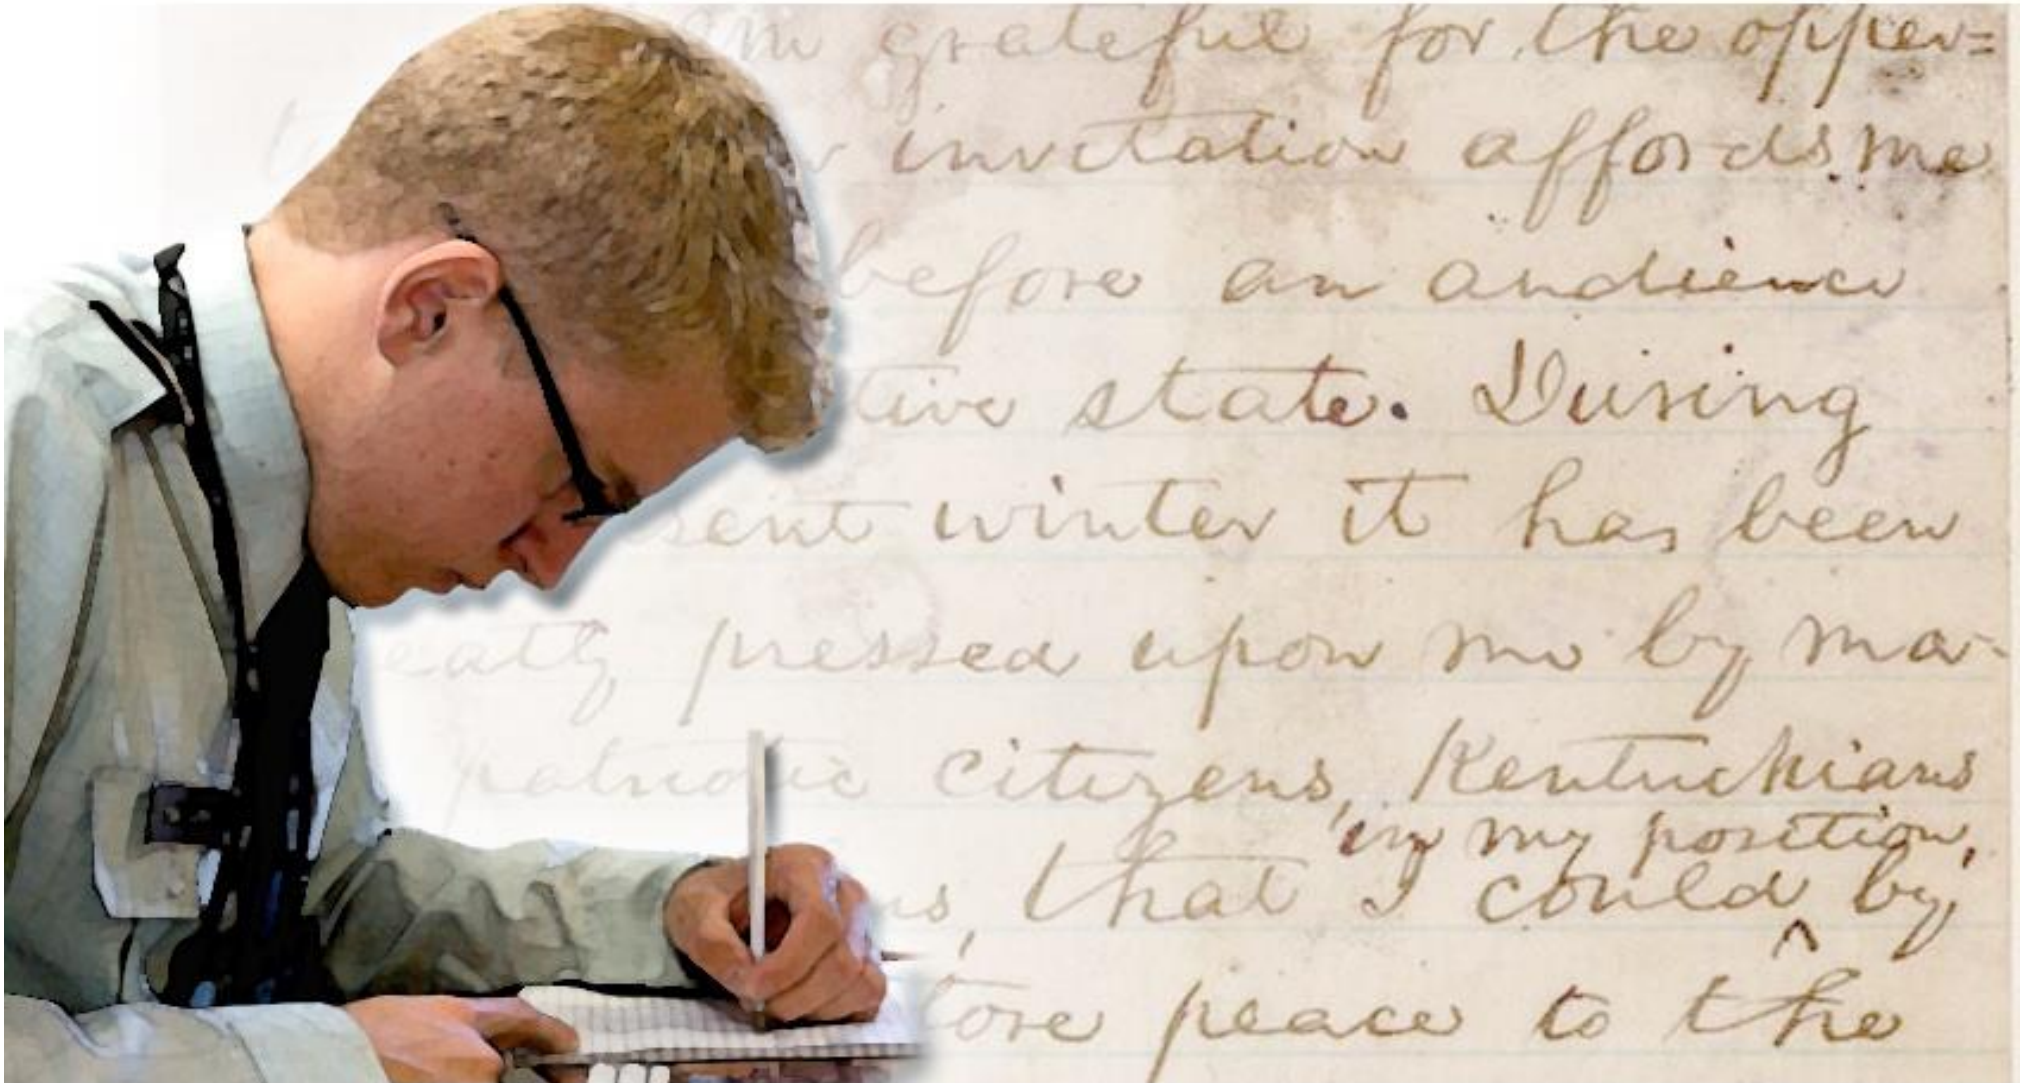 am grateful for the opper=
invitation affords me
before an audience
tive state. During
sent winter it has been
eatly pressed upon me by ma-
patriotic citizens, Kentuckians
in my position,
us, that I could by
^
tore peace to the